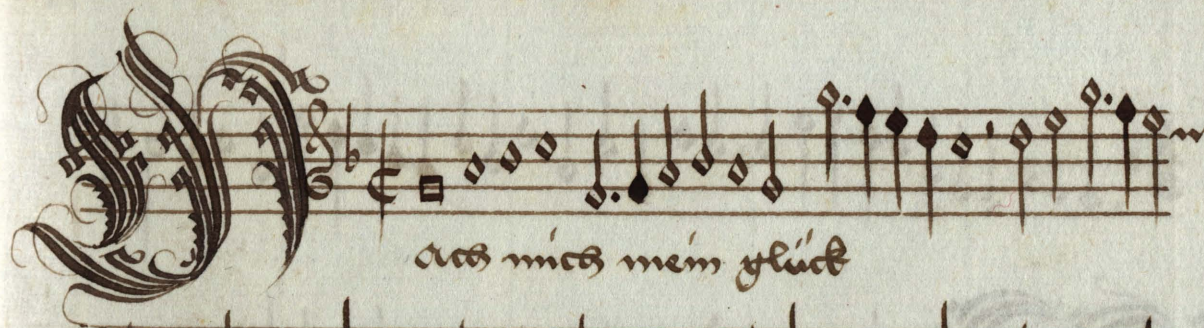 Mach mich mein glück